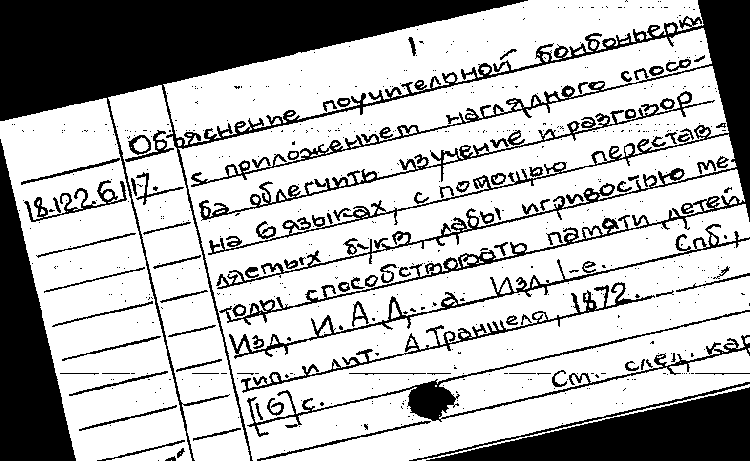 1.
Объяснение поучительной бонбоньерки
с приложением наглядного спосо-
18.122.6.117. ба облегчить изучение и разговор
на 6 языках, с помощью перестав-
ляемых букв, дабы игривостью ме-
тоды способствовать памяти детей.
Изд. И. А. Д...а. Изд. 1-е. Спб.,
тип. и лит. А. Траншеля, 1872.
[16] с.
См. след. кар